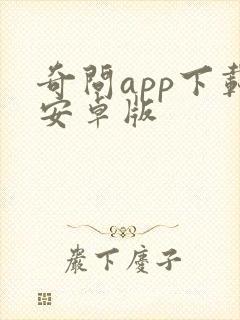 奇問app下載
安卓版
嚴下慶子